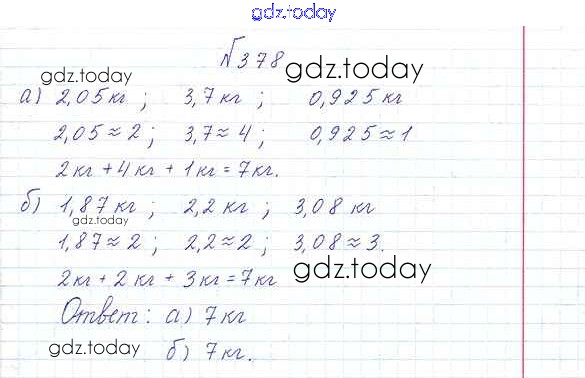 gdz.today
№378
gdz.today gdz.today
а) 2,05 кг ; 3,7 кг ; 0,925 кг
2,05 ≈ 2 ; 3,7 ≈ 4 ; 0,925 ≈ 1
2 кг + 4 кг + 1 кг = 7 кг.
б) 1,87 кг ; 2,2 кг ; 3,08 кг
gdz.today
1,87 ≈ 2 ; 2,2 ≈ 2 ; 3,08 ≈ 3.
2 кг + 2 кг + 3 кг = 7 кг
gdz.today
Ответ: а) 7 кг
б) 7 кг.
gdz.today